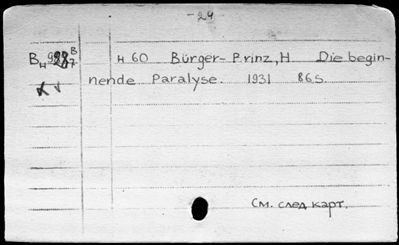 - 24
H 60 Bürger-Prinz, H Die begin-
nende Paralyse. 1931 86S.
См. след карт.